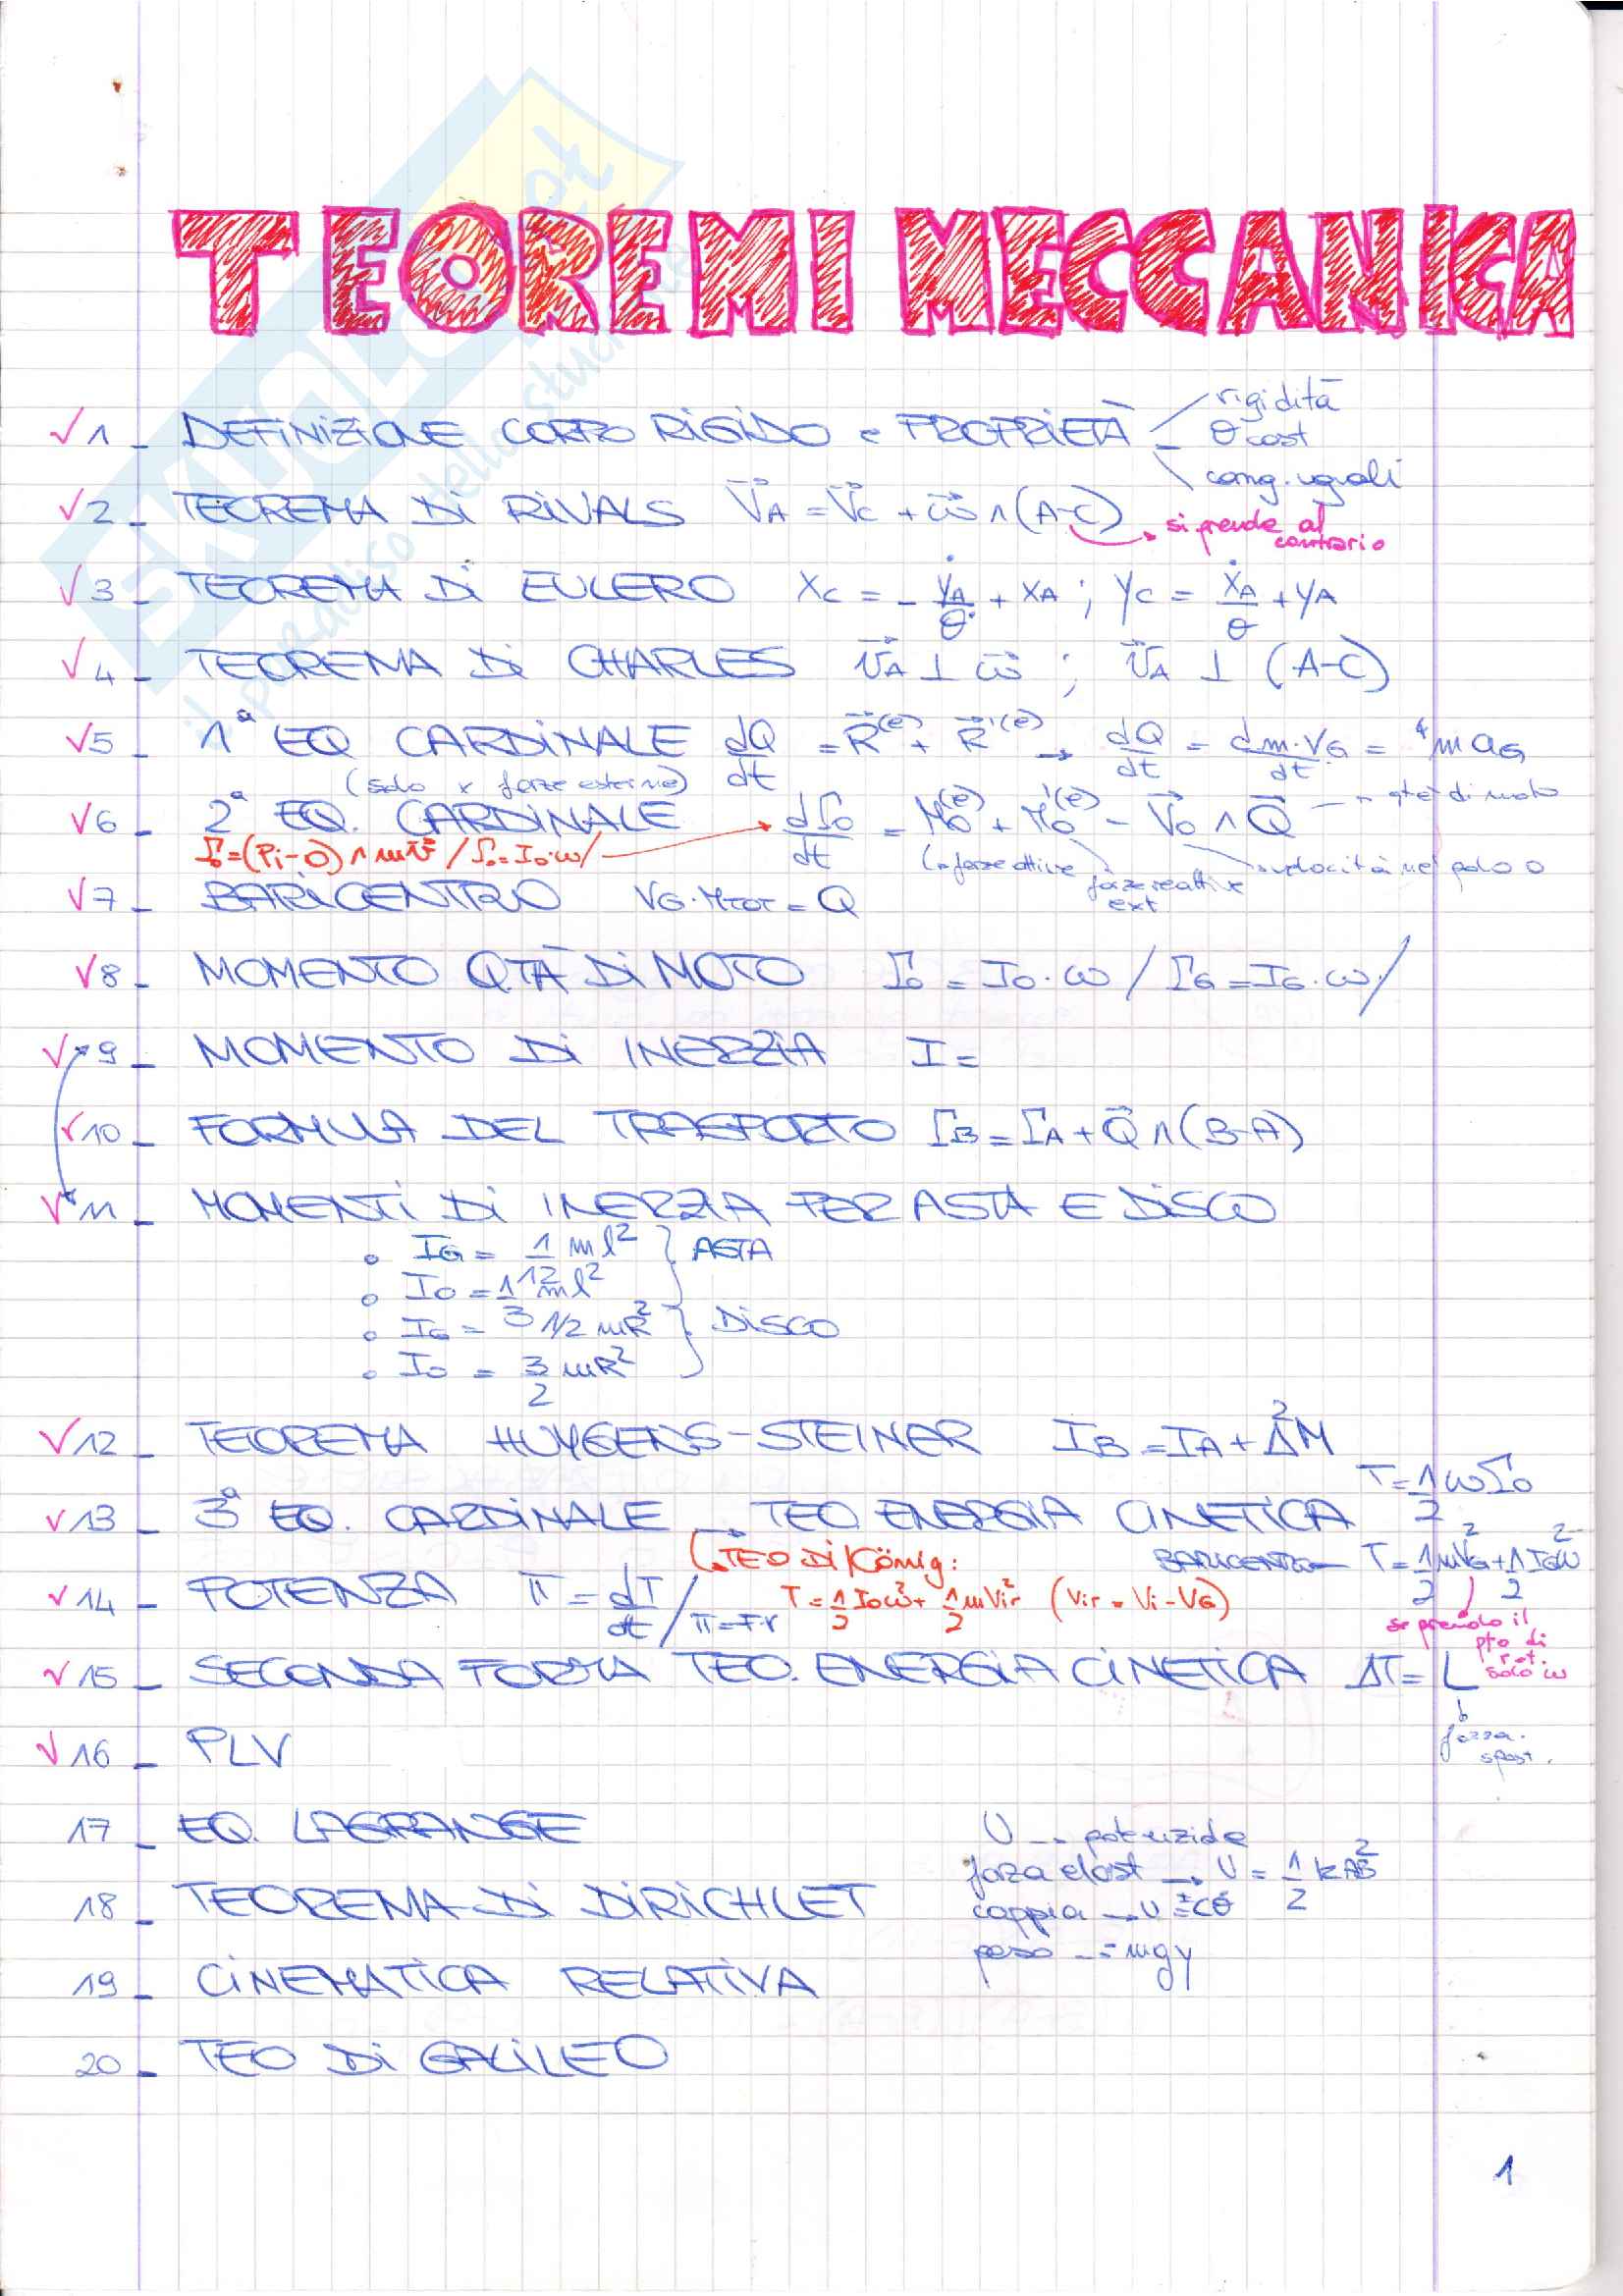 TEOREMI MECCANICA
√1 - DEFINIZIONE CORPO RIGIDO e PROPRIETÀ
rigidità
θ cost
cong. uguali
√2 - TEOREMA DI RIVALS V⃗A = V⃗C + ω⃗ ∧ (A-C) si prende al contrario
√3 - TEOREMA DI EULERO XC = - ẏA/θ̇ + XA ; YC = ẋA/θ + YA
√4 - TEOREMA DI CHARLES v⃗A ⊥ ω⃗ ; v⃗A ⊥ (A-C)
√5 - 1ª EQ CARDINALE dQ/dt = R⃗(e) + R⃗'(e) → dQ/dt = dm·VG/dt = maG
(solo x forze esterne)
√6 - 2ª EQ. CARDINALE dΓo/dt = Mo(e) + Mo'(e) - V⃗o ∧ Q⃗ → qtà di moto
Γo = (Pi-O) ∧ mv⃗ / Γo = Io·ω/
forze attive
forze reattive ext
velocità nel polo O
√7 - BARICENTRO VG·MTOT = Q
√8 - MOMENTO QTÀ DI MOTO Γo = Io·ω / ΓG = IG·ω /
√9 - MOMENTO DI INERZIA I =
√10 - FORMULA DEL TRASPORTO ΓB = ΓA + Q⃗ ∧ (B-A)
√11 - MOMENTI DI INERZIA PER ASTA E DISCO
• IG = 1/12 ml² } ASTA
• Io = 1/3 ml²
• IG = 1/2 mR² } DISCO
• Io = 3/2 mR²
√12 - TEOREMA HUYGENS-STEINER IB = IA + Δ²M
√13 - 3ª EQ. CARDINALE → TEO ENERGIA CINETICA T = 1/2 ωΓo
BARICENTRO - T = 1/2 mVG² + 1/2 IGω²
TEO DI König:
T = 1/2 Ioω² + 1/2 mVir² (Vir = Vi - VG)
√14 - POTENZA Π = dT/dt / Π = F·v
se prendo il pto di rot. solo ω
√15 - SECONDA FORMA TEO. ENERGIA CINETICA ΔT = L
forza. spost.
√16 - PLV
17 - EQ. LAGRANGE
U → potenziale
forza elast → U = 1/2 kAB²
18 - TEOREMA DI DIRICHLET
coppia → U = ±Cθ
peso → = mgy
19 - CINEMATICA RELATIVA
20 - TEO DI GALILEO
1
SKUOLA.net
il paradiso dello studente